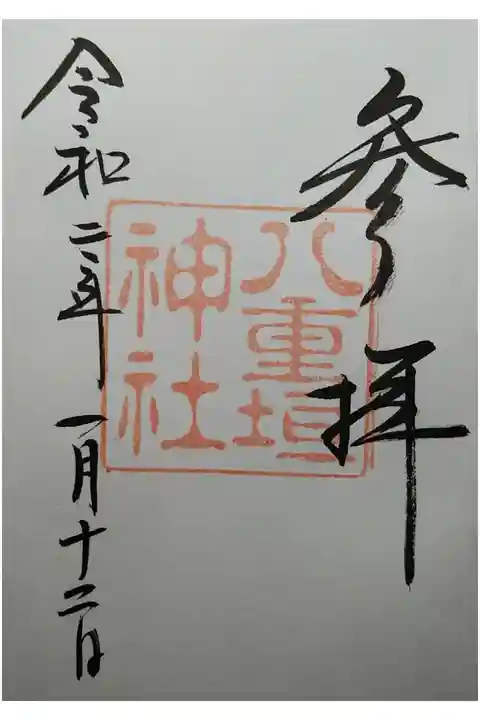 参拝
八重垣
神社
令和二年一月十二日